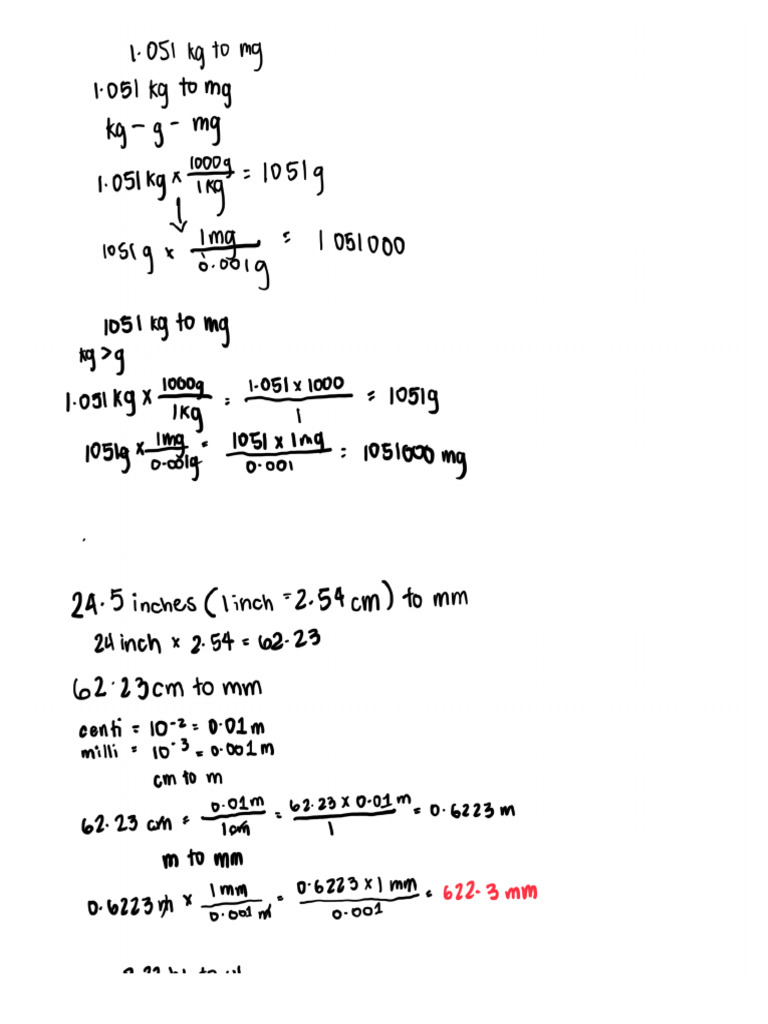 1.051 kg to mg
1.051 kg to mg
kg - g - mg
1.051 kg × 1000g/1kg = 1051g
↓
1051g × 1mg/0.001g = 1 051000
1051 kg to mg
kg > g
1.051 kg × 1000g/1kg = 1.051 × 1000/1 = 1051g
1051g × 1mg/0.001g = 1051 × 1mg/0.001 = 1051000 mg
24.5 inches (1 inch = 2.54 cm) to mm
24 inch × 2.54 = 62.23
62.23 cm to mm
centi = 10⁻² = 0.01 m
milli = 10⁻³ = 0.001 m
cm to m
62.23 cm = 0.01m/1cm = 62.23 × 0.01 m/1 = 0.6223 m
m to mm
0.6223 m × 1 mm/0.001 m = 0.6223 × 1 mm/0.001 = 622.3 mm